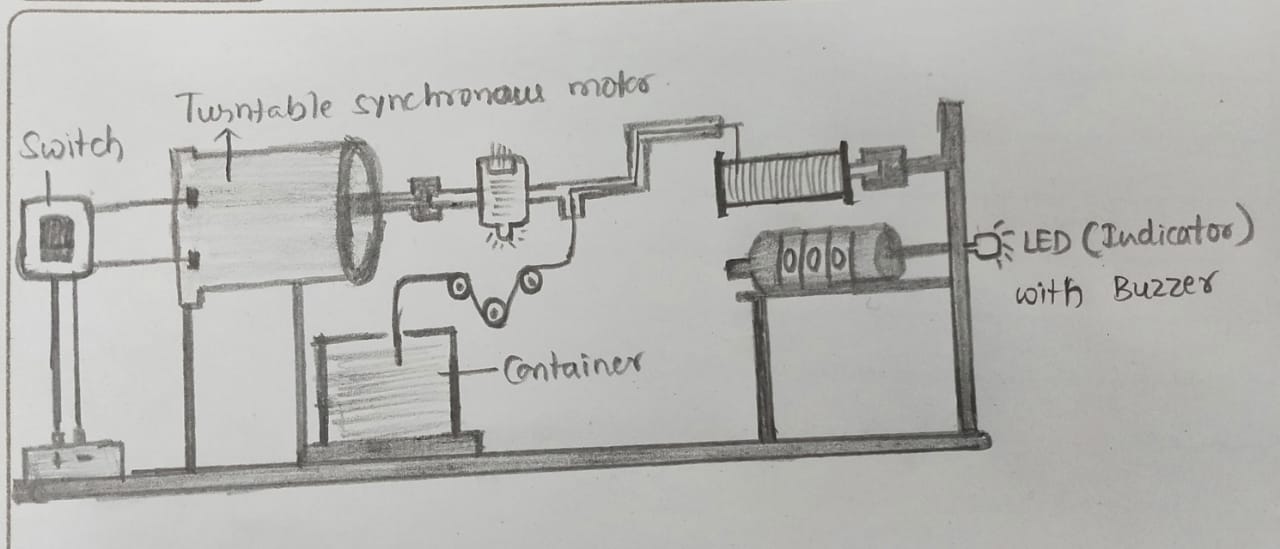 Turntable synchronous motor
Switch
000
LED (Indicator)
with Buzzer
Container
+ -